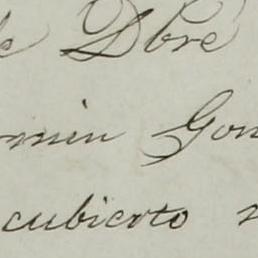 de Dbre
rmin Gon
cubierto